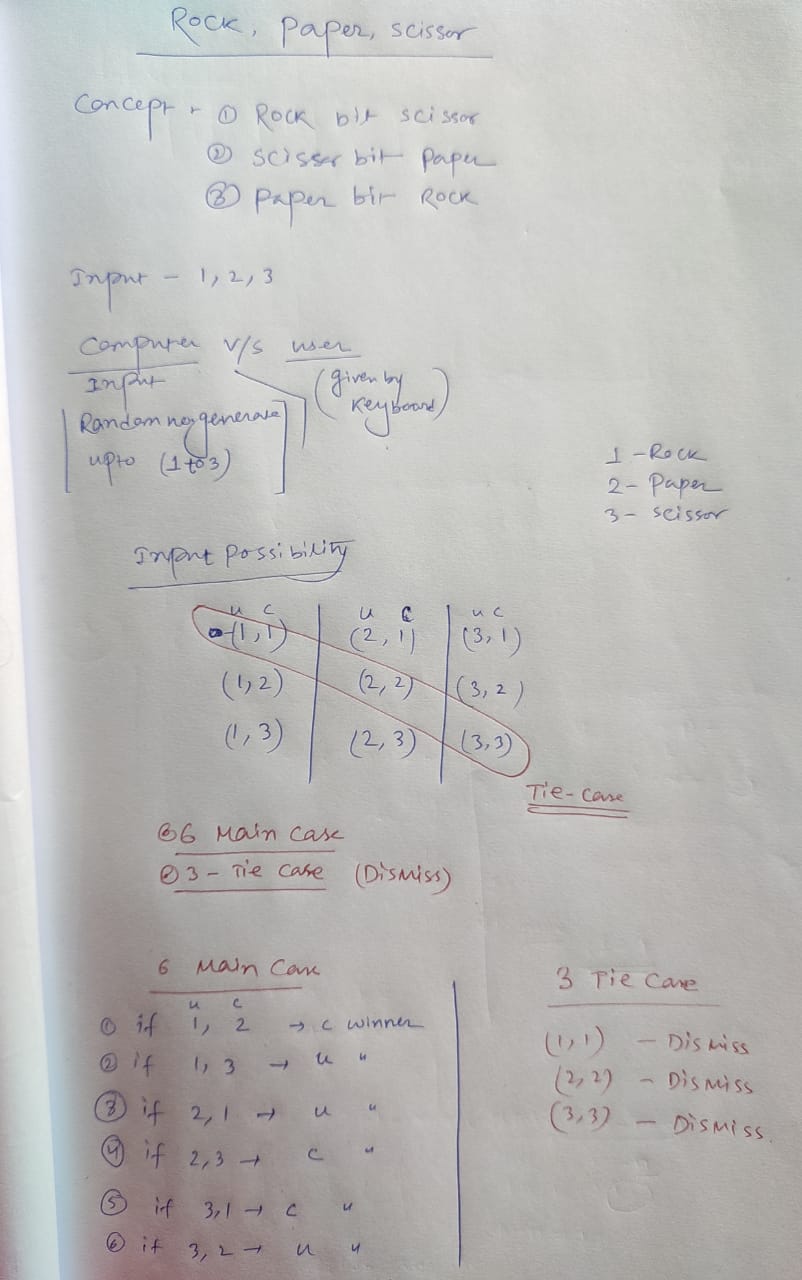 Rock, Paper, scissor
Concept - ① Rock bit scissor
② scisser bit Paper
③ Paper bit Rock
Input - 1, 2, 3
Computer v/s user
Input
(given by
Keyboard)
Random no generate
upto (1 to 3)
1 - Rock
2 - Paper
3 - scissor
Input Possibility
u c u c u c
(1,1) (2,1) (3,1)
(1,2) (2,2) (3,2)
(1,3) (2,3) (3,3)
Tie-Case
6 Main Case
3 - Tie Case (Dismiss)
6 Main Case
u c
① if 1, 2 → c winner
② if 1, 3 → u "
③ if 2, 1 → u "
④ if 2, 3 → c "
⑤ if 3, 1 → c "
⑥ if 3, 2 → u "
3 Tie Case
(1,1) - Dismiss
(2,2) - Dismiss
(3,3) - Dismiss.